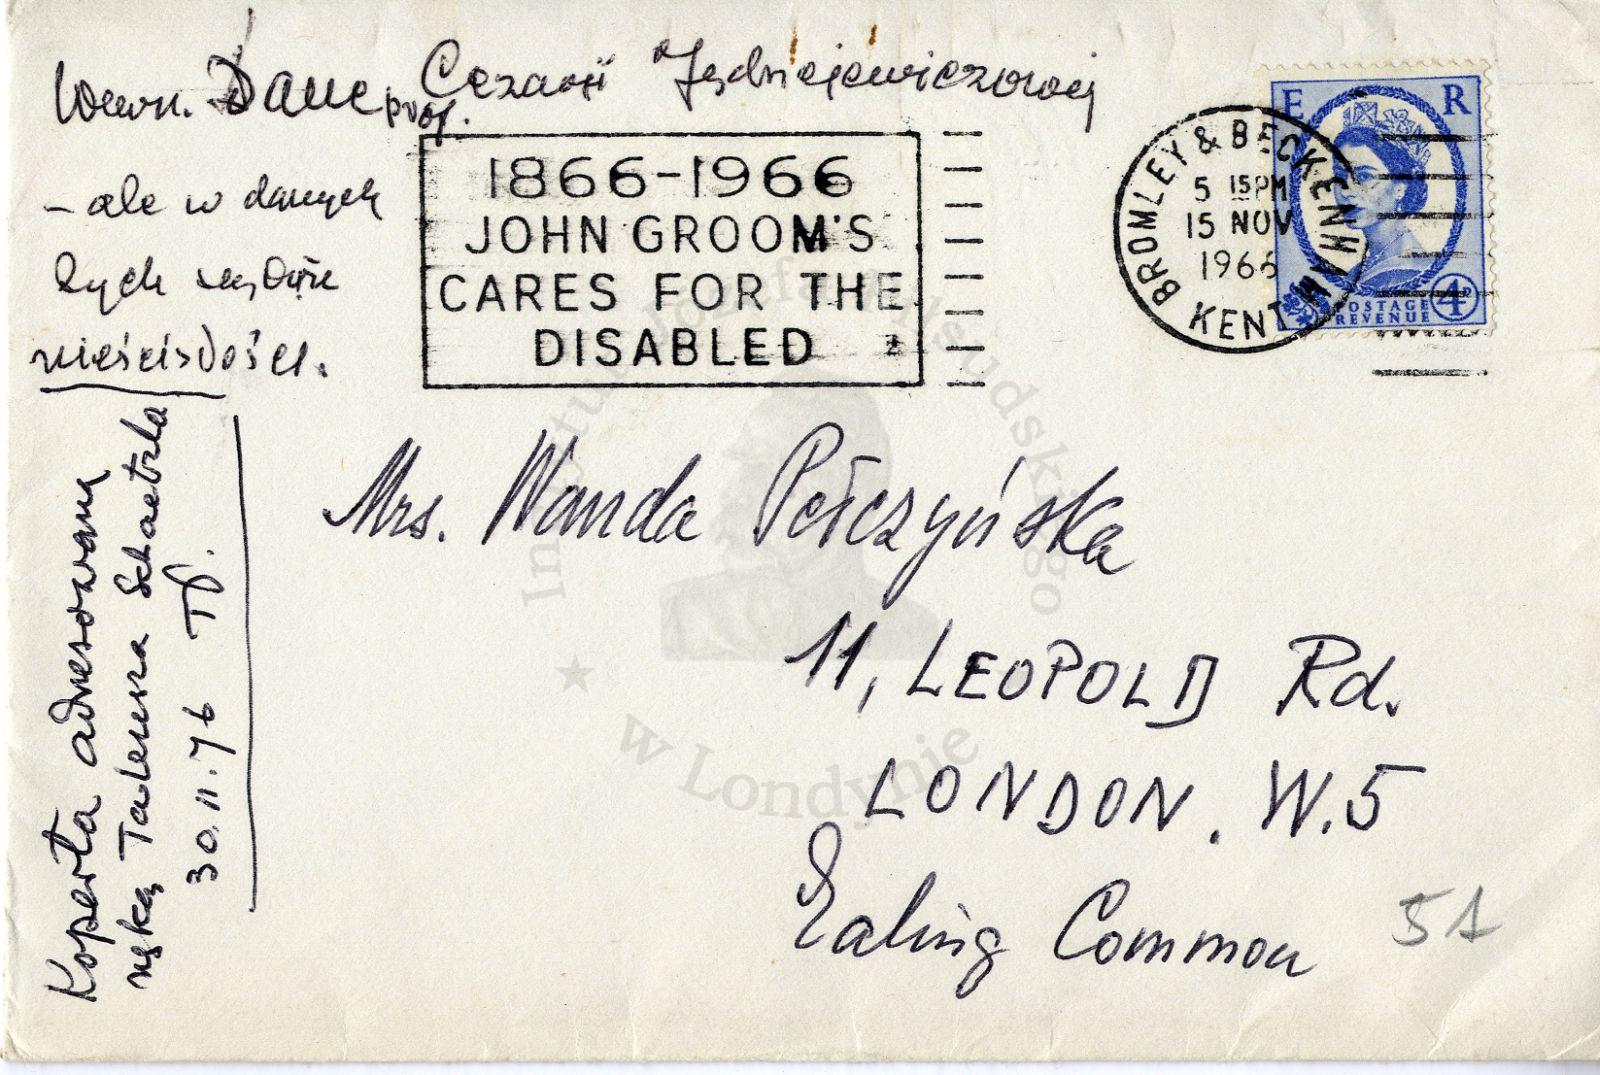 Wewn. Dane prof. Cezarii Jędrzejewiczowej
– ale w danych
tych są duże
nieścisłości.
1866-1966
JOHN GROOM'S
CARES FOR THE
DISABLED
BROMLEY & BECKENHAM
5 15 PM
15 NOV
1966
KENT
E R
POSTAGE
REVENUE
4D
Mrs. Wanda Pełczyńska
11, LEOPOLD Rd.
LONDON. W.5
Ealing Common
51
Koperta adresowana
ręką Tadeusza Schaetzla
30.11.76
Instytut Józefa Piłsudskiego
w Londynie